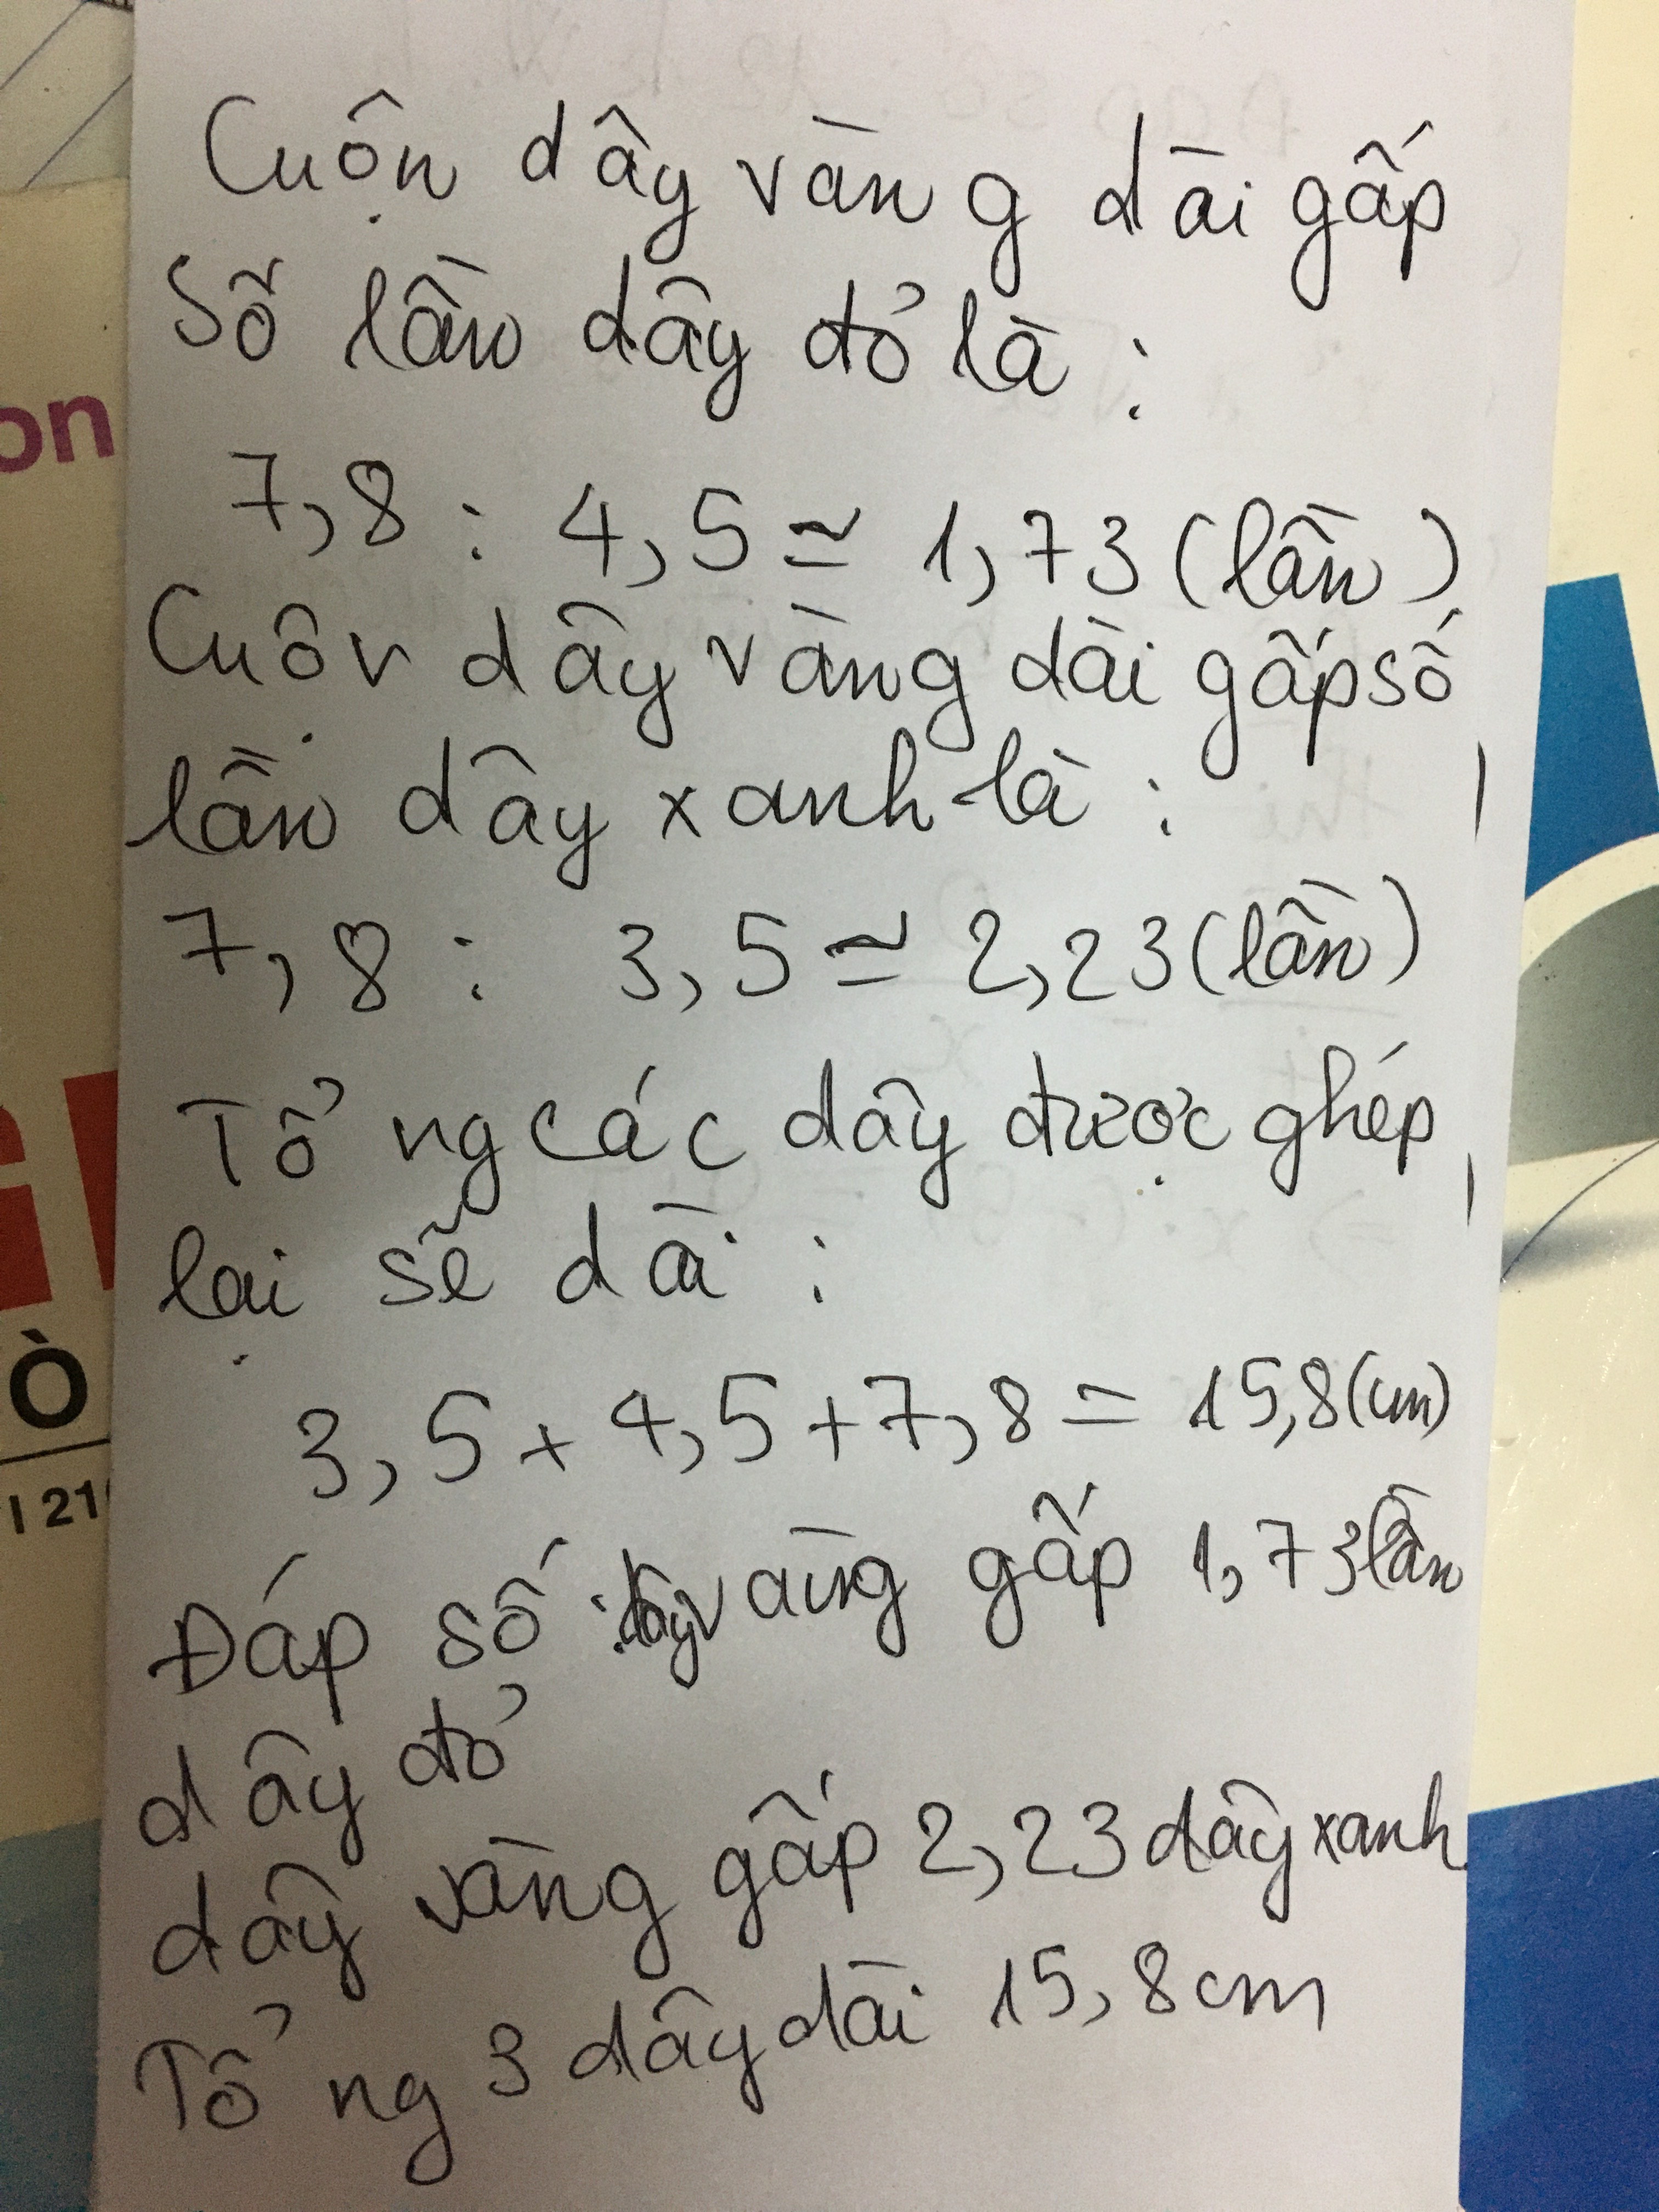 Cuộn dây vàng dài gấp
số lần dây đỏ là :
7,8 : 4,5 ≃ 1,73 (lần)
Cuộn dây vàng dài gấp số
lần dây xanh là :
7,8 : 3,5 ≃ 2,23 (lần)
Tổng các dây được ghép
lại sẽ dài :
3,5 + 4,5 + 7,8 = 15,8 (cm)
Đáp số : dây vàng gấp 1,73 lần
dây đỏ
dây vàng gấp 2,23 dây xanh
Tổng 3 dây dài 15,8 cm
on
G
Ò
I 21